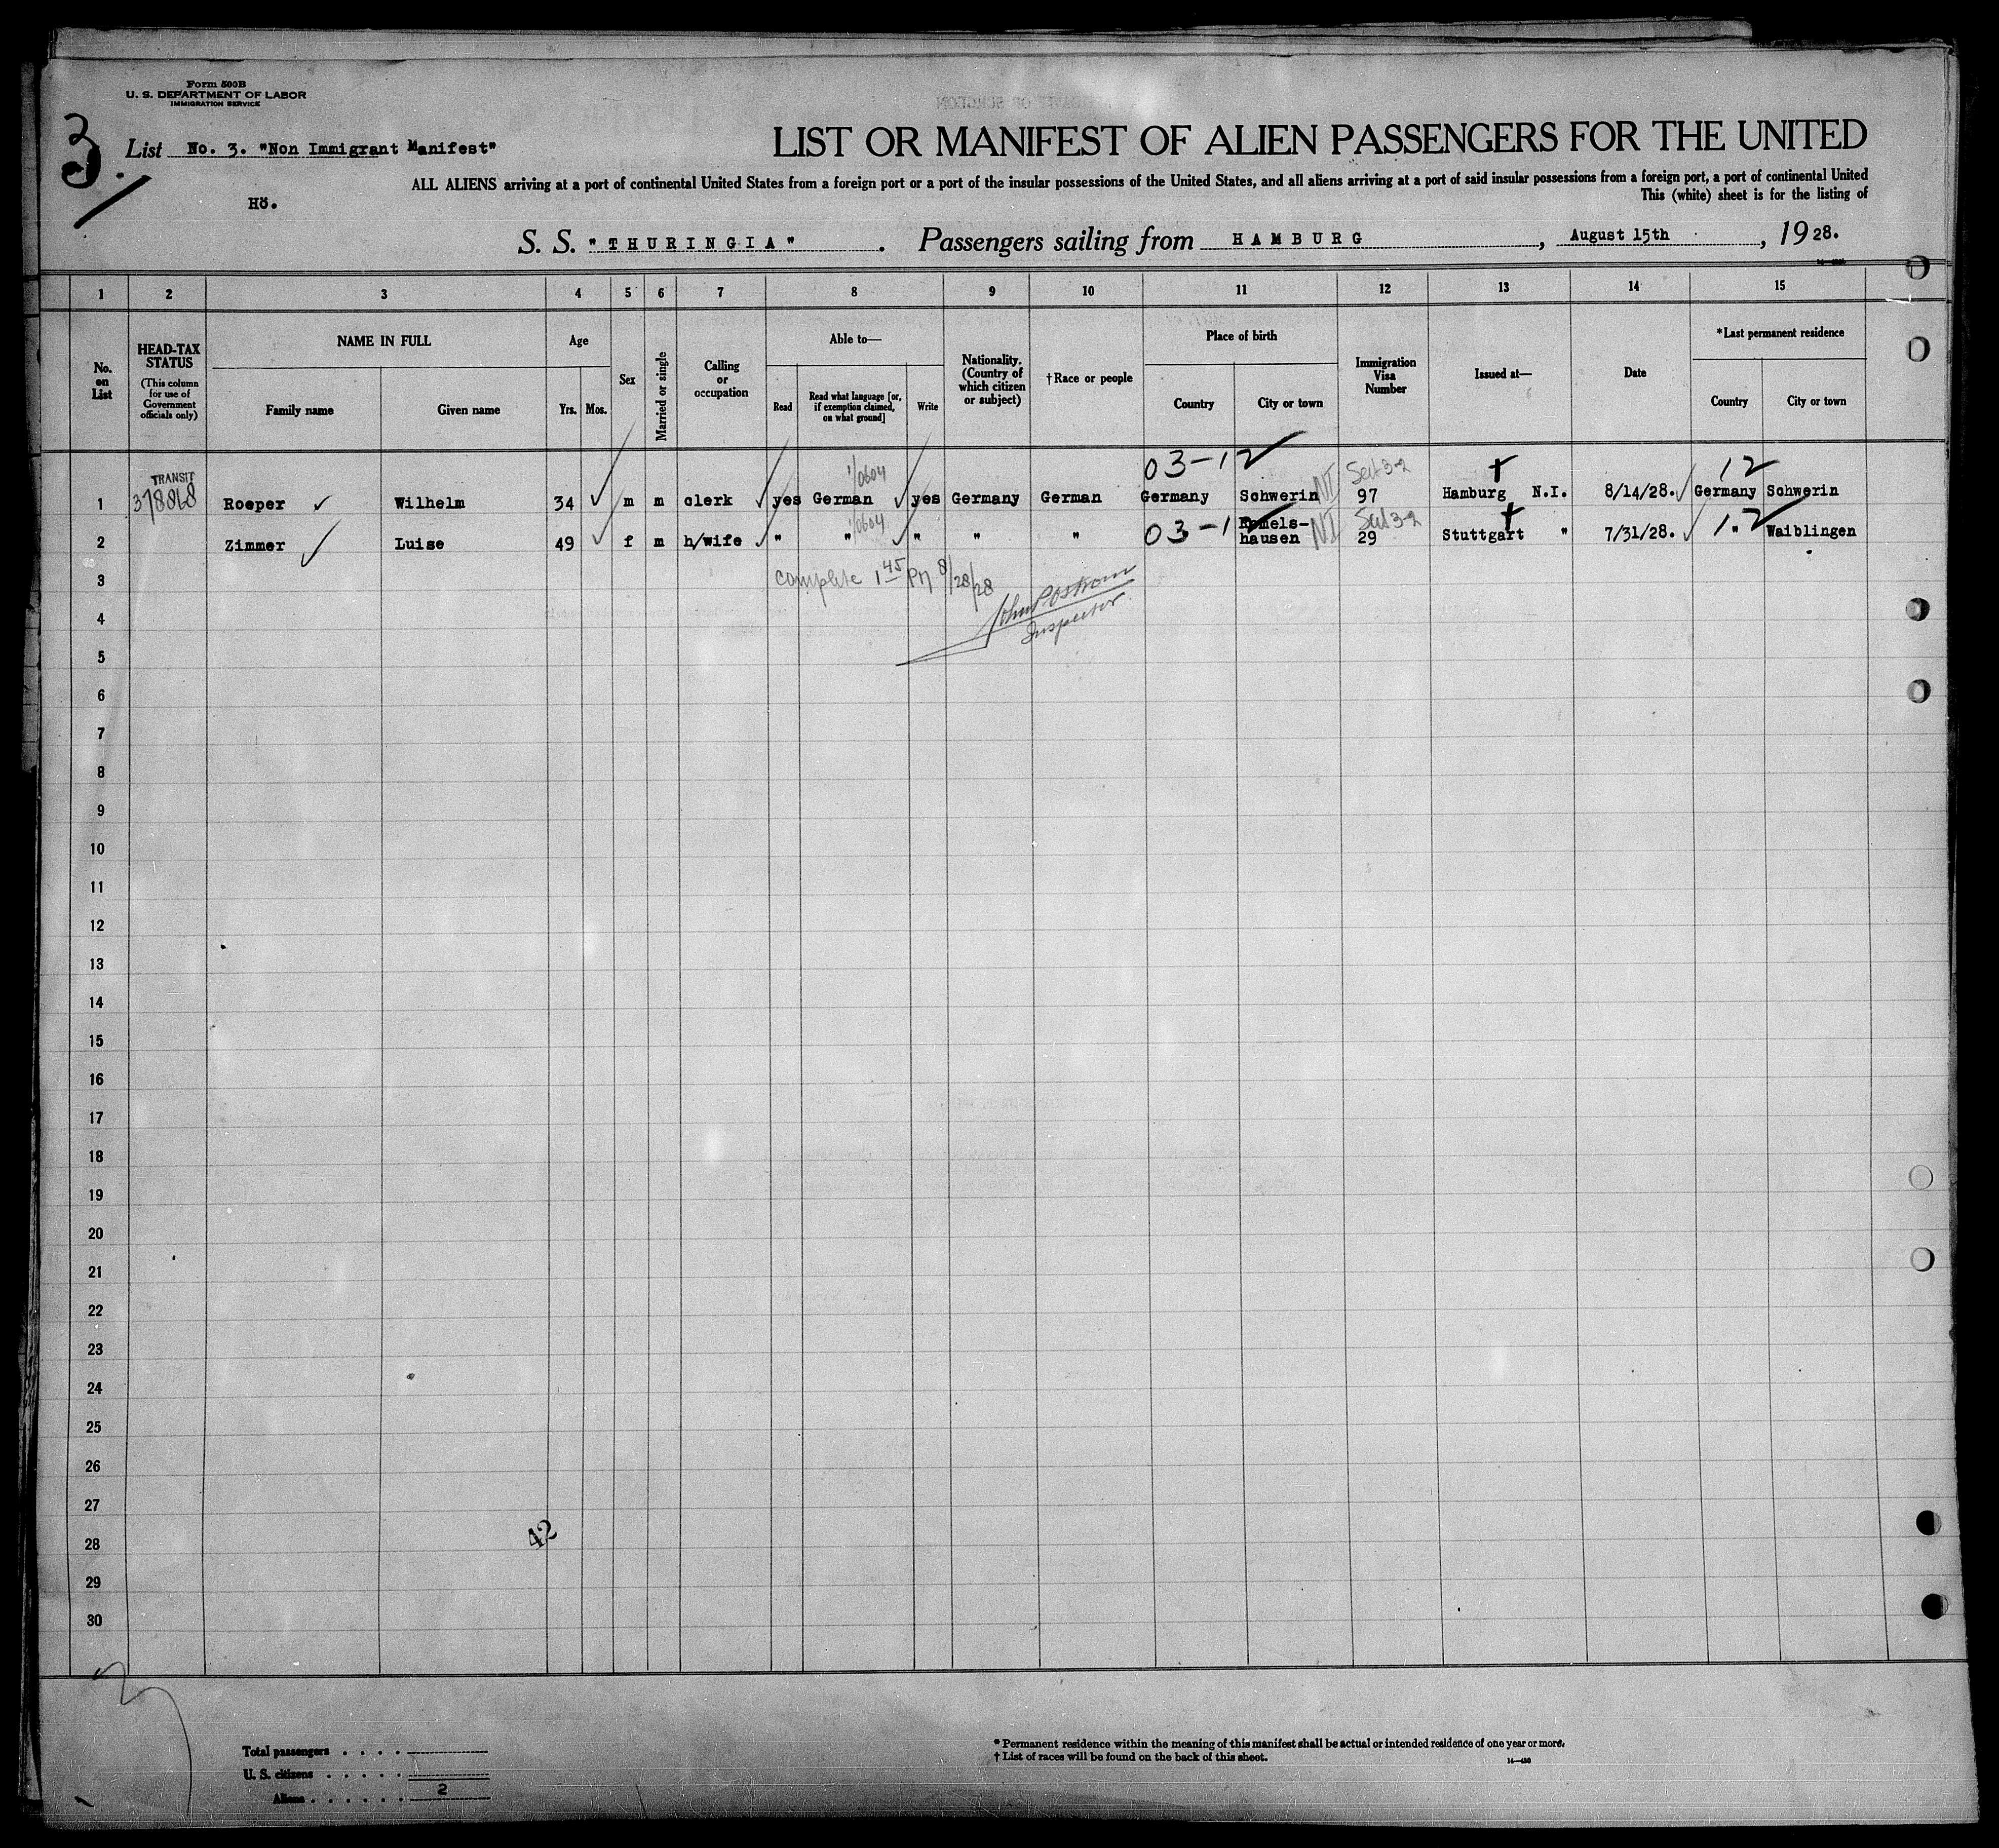 Form 500B
U. S. DEPARTMENT OF LABOR
IMMIGRATION SERVICE
3.
List No. 3. "Non Immigrant Manifest"
Hö.
LIST OR MANIFEST OF ALIEN PASSENGERS FOR THE UNITED
ALL ALIENS arriving at a port of continental United States from a foreign port or a port of the insular possessions of the United States, and all aliens arriving at a port of said insular possessions from a foreign port, a port of continental United
This (white) sheet is for the listing of
S. S. "THURINGIA". Passengers sailing from HAMBURG, August 15th, 1928.
1 2 3 4 5 6 7 8 9 10 11 12 13 14 15
No. on List
HEAD-TAX STATUS (This column for use of Government officials only)
NAME IN FULL Family name Given name
Age Yrs. Mos.
Sex
Married or single
Calling or occupation
Able to— Read Read what language [or, if exemption claimed, on what ground] Write
Nationality. (Country of which citizen or subject)
†Race or people
Place of birth Country City or town
Immigration Visa Number
Issued at—
Date
*Last permanent residence Country City or town
TRANSIT 1/0604 03-12 NI Sect 3-2 12
1 378868 Roeper Wilhelm 34 m m clerk yes German yes Germany German Germany Schwerin 97 Hamburg N.I. 8/14/28. Germany Schwerin
1/0604 03-1 NI Sect 3-2 12
2 Zimmer Luise 49 f m h/wife " " " " " hausen 29 Stuttgart " 7/31/28. " Waiblingen
3 complete 1 45 PM 8/28/28
4 John Postrom
Inspector
5
6
7
8
9
10
11
12
13
14
15
16
17
18
19
20
21
22
23
24
25
26
27
28 42
29
30
Total passengers
U. S. citizens
Aliens 2
* Permanent residence within the meaning of this manifest shall be actual or intended residence of one year or more.
† List of races will be found on the back of this sheet. 14—430